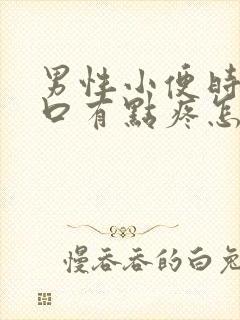 男性小便時
口有點疼怎
慢吞吞的白兔